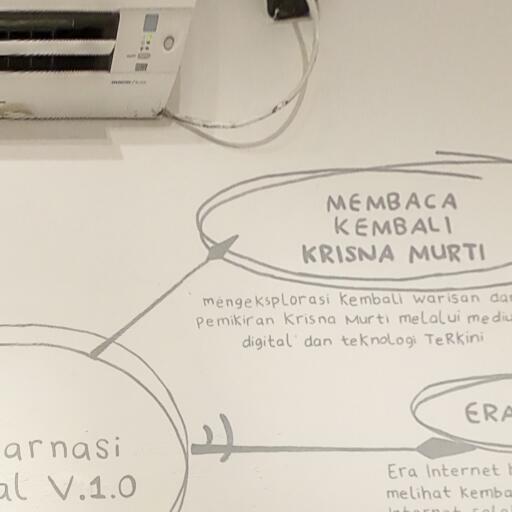 MEMBACA
KEMBALI
KRISNA MURTI
mengeksplorasi kembali warisan
Pemikiran Krisna Murti melalui
digital dan teknologi Terkini
ERA
arnasi
al V.1.0
Era Internet
melihat